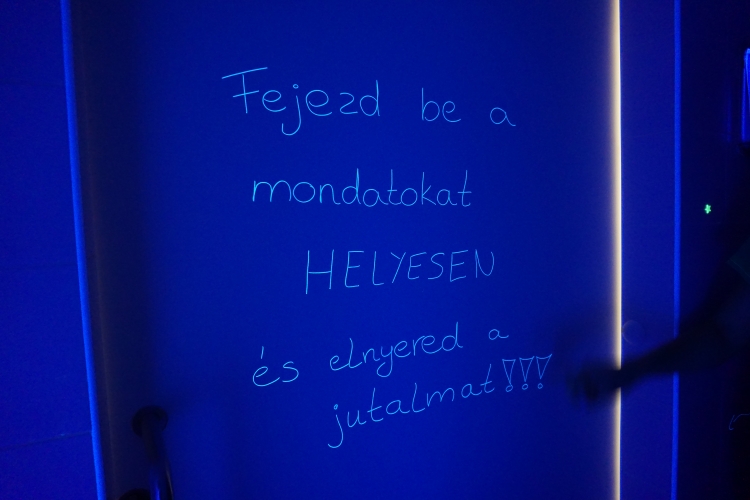 Fejezd be a
mondatokat
HELYESEN
és elnyered a
jutalmat!!!